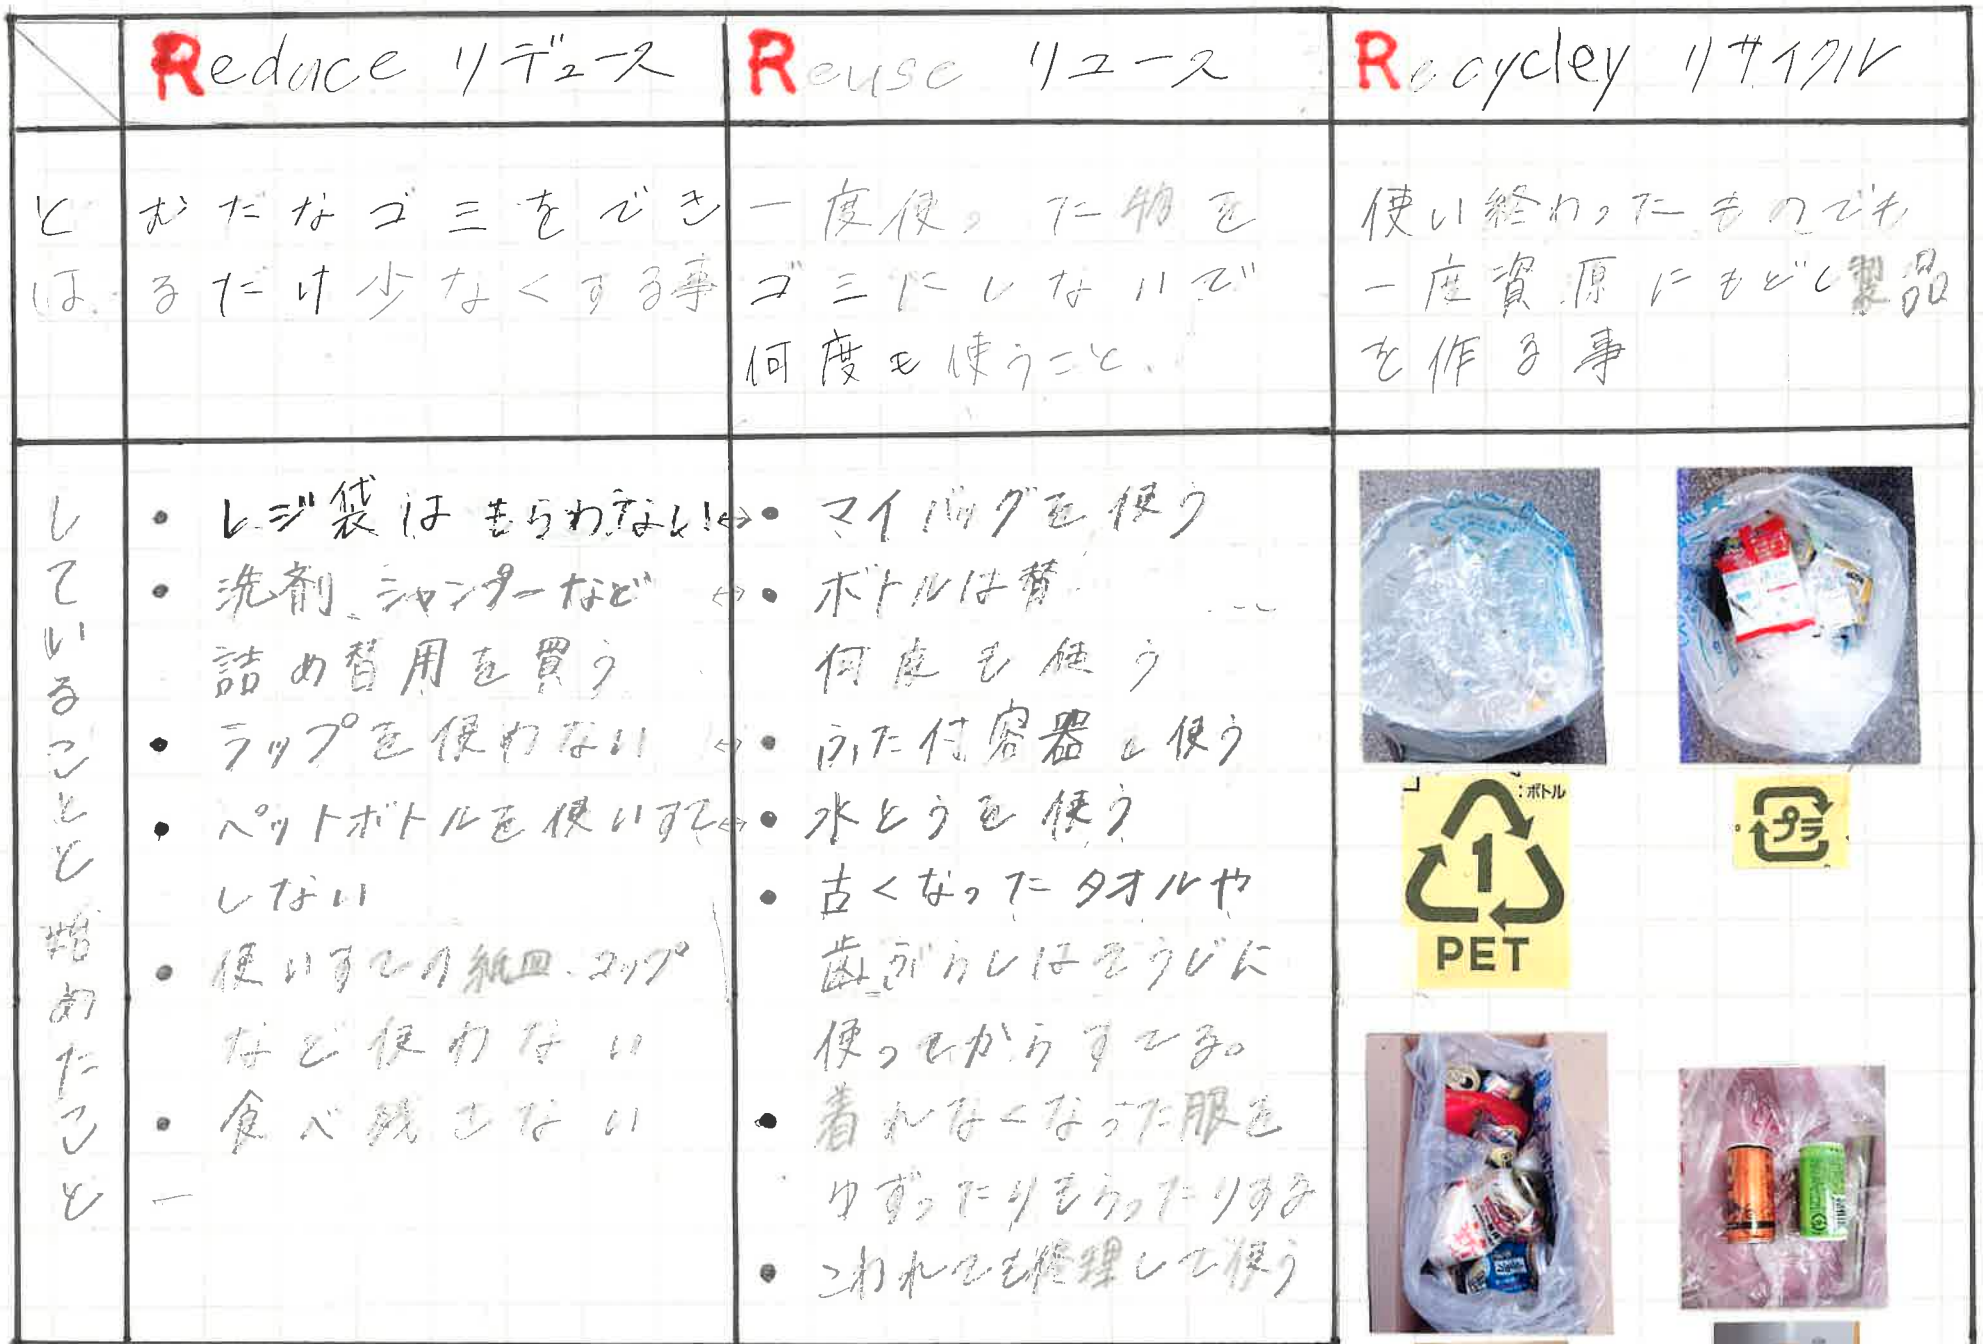 Reduce リデュース
Reuse リユース
Recycley リサイクル
とは
むだなゴミをでき
るだけ少なくする事
一度使った物を
ゴミにしないで
何度も使うこと
使い終わったものでも
一度資原にもどし製品
を作る事
していることと始めたこと
• レジ袋はもらわない↔
• 洗剤、シャンプーなど ↔
詰め替用を買う
• ラップを使わない ↔
• ペットボトルを使いすて↔
しない
• 使いすての紙皿、コップ
など使わない
• 食べ残さない
• マイバッグを使う
• ボトルは替
何度も使う
• ふた付容器を使う
• 水とうを使う
• 古くなったタオルや
歯ぶらしはそうじに
使ってからすてる。
• 着れなくなった服を
ゆずったりもらったりする
• こわれても修理して使う
:ボトル
1
PET
プラ